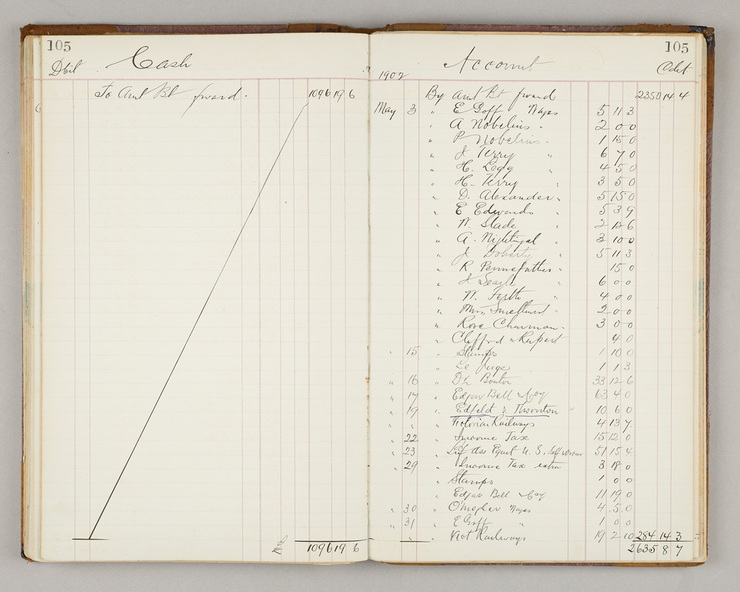 105
Dbit Cash
To Amt Bt forward. 1096 19 6
1096 19 6
105
1902 Account Credit
By Amt Bt forward 2350 14 4
May 3 " E Goff Wages 5 11 3
" A Nobelius " 2 0 0
" P Nobelius " 1 15 0
" J. Terry " 6 7 0
" H. Legg " 4 5 0
" H. Terry " 3 5 0
" D. Alexander " 5 15 0
" E Edwards " 5 3 9
" W. Slade " 2 12 6
" A. Nightingal " 3 10 0
" J Doherty " 5 11 3
" R Pennefather " 15 0
" J Searle " 6 0 0
" W. Firth " 4 0 0
" 2 0 0
" Rose Chairman " 3 0 0
" Clifford & Rupert 4 0
" 15 " Stamps 1 10 0
" 1 1 3
" 16 " 33 12 6
" 17 " Edgar Bell & Coy 63 4 0
" 19 " Edfeld & Thornton " 10 6 0
" " " Victorian Railways 4 13 7
" 22 " Income Tax 15 12 0
" 23 " 51 15 4
" 29 " Income Tax extra 3 18 0
" Stamps 1 0 0
" Edgar Bell & Coy 11 19 0
" 30 " Wages 4 5 0
" 31 " E Goff " 1 0 0
" " Vict Railways 19 2 10 284 14 3
2635 8 7